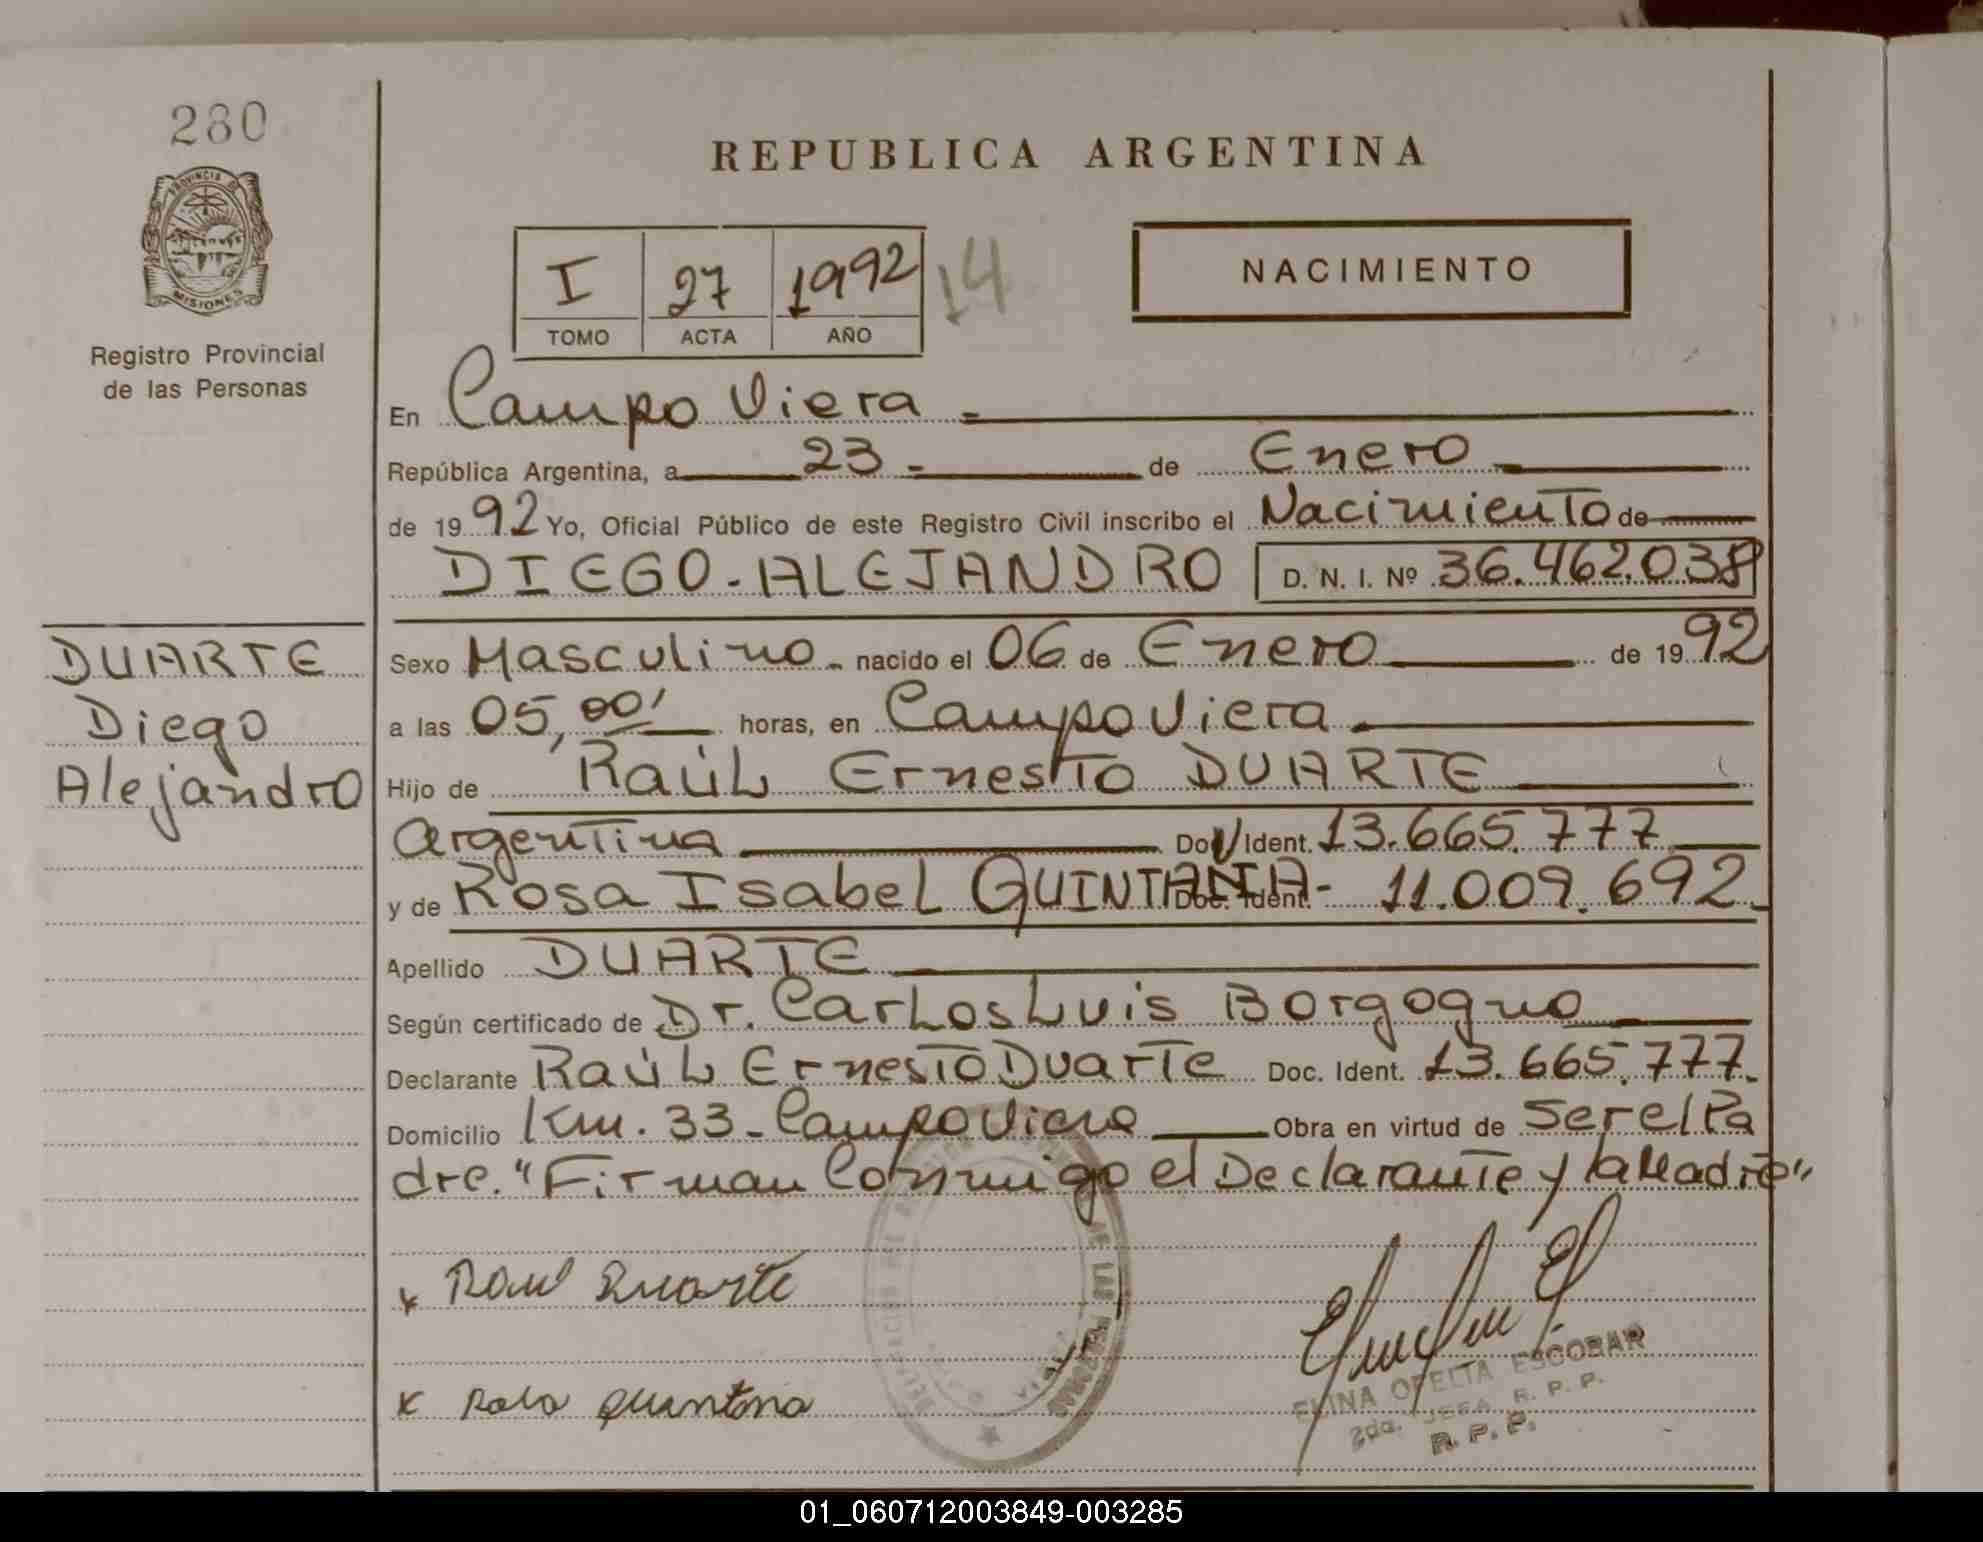 280
REPUBLICA ARGENTINA
PROVINCIA DE
MISIONES
Registro Provincial
de las Personas
I 27 1992 14
TOMO ACTA AÑO
NACIMIENTO
En Campo Viera
República Argentina, a 23 de Enero
de 1992 Yo, Oficial Público de este Registro Civil inscribo el Nacimiento de
DIEGO - ALEJANDRO D. N. I. Nº 36.462.038
DUARTE
Diego
Alejandro
Sexo Masculino nacido el 06 de Enero de 1992
a las 05,00' horas, en Campo Viera
Hijo de Raúl Ernesto DUARTE
Argentina Doc. Ident. 13.665.777
y de Rosa Isabel QUINTANA - Doc. Ident. 11.009.692
Apellido DUARTE
Según certificado de Dr. Carlos Luis Borgogno
Declarante Raúl Ernesto Duarte Doc. Ident. 13.665.777
Domicilio Km. 33 - Campo Viera Obra en virtud de Ser el Pa
dre. "Firman Conmigo el Declarante y la Madre"
x Raul Duarte
x Rosa Quintana
ELINA OFELIA ESCOBAR
2da. JEFA R. P. P.
R. P. P.
01_060712003849-003285